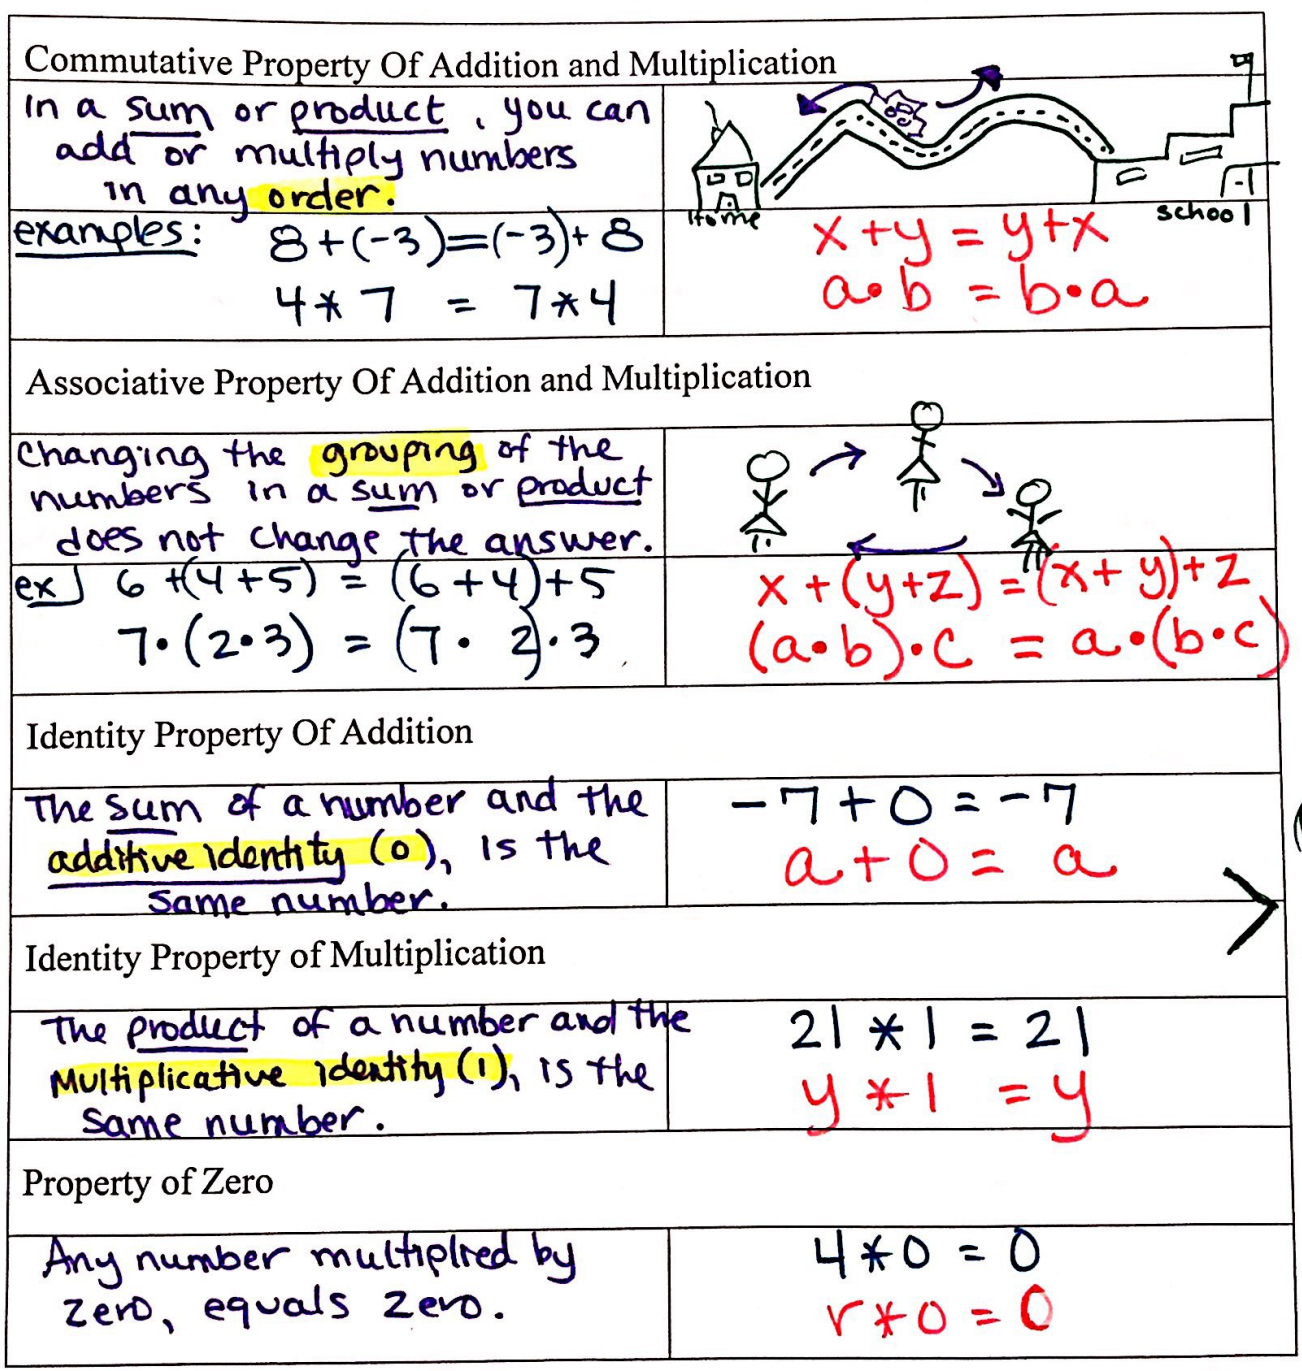 Commutative Property Of Addition and Multiplication
In a sum or product, you can
add or multiply numbers
in any order.
Home
school
examples: 8+(-3)=(-3)+8
4*7 = 7*4
x+y = y+x
a•b = b•a
Associative Property Of Addition and Multiplication
Changing the grouping of the
numbers in a sum or product
does not change the answer.
ex] 6+(4+5) = (6+4)+5
7•(2•3) = (7•2)•3
x+(y+z)=(x+y)+z
(a•b)•c = a•(b•c)
Identity Property Of Addition
The sum of a number and the
additive identity (0), is the
same number.
-7+0=-7
a+0=a
Identity Property of Multiplication
The product of a number and the
Multiplicative identity (1), is the
same number.
21*1=21
y*1=y
Property of Zero
Any number multiplied by
zero, equals zero.
4*0=0
r*0=0